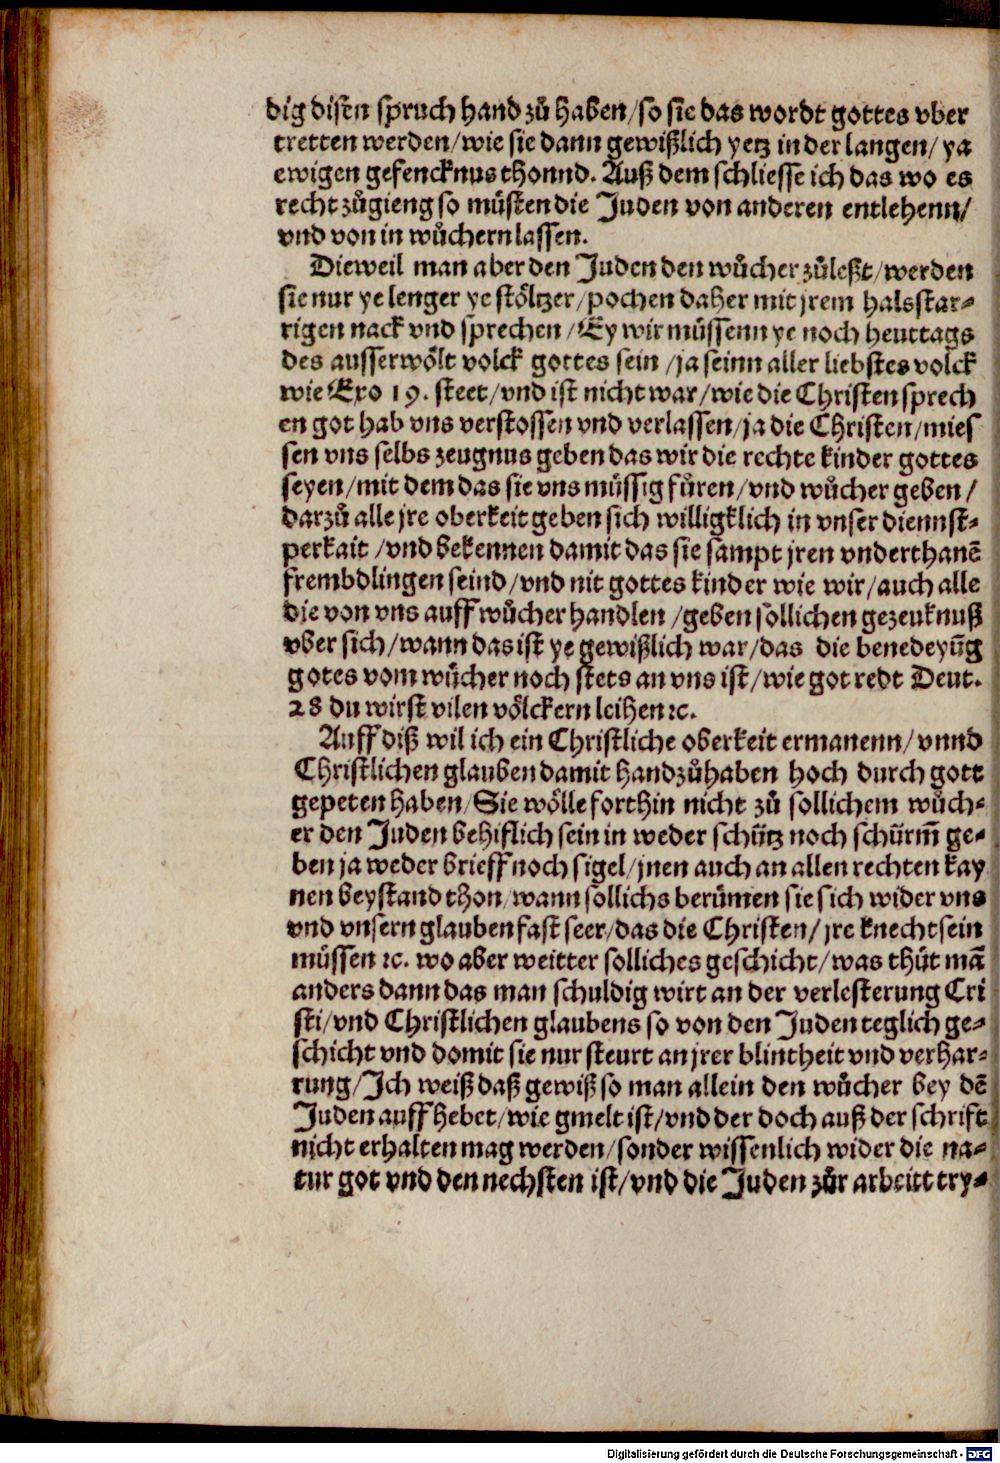 dig disen spruch hand zů haben/so sie das wordt gottes vber
tretten werden/wie sie dann gewißlich yetz in der langen/ ya
ewigen gefencknus thonnd. Auß dem schliesse ich das wo es
recht zůgieng so müsten die Juden von anderen entlehenn/
vnd von in wůchern lassen.
Dieweil man aber den Juden den wůcher zůleßt/werden
sie nur ye lenger ye stöltzer/pochen daher mit jrem halsstar⸗
rigen nack vnd sprechen/Ey wir müssenn ye noch heuttags
des ausserwölt volck gottes sein/ja seinn aller liebstes volck
wie Exo 19. steet/vnd ist nicht war/wie die Christen sprech
en got hab vns verstossen vnd verlassen/ja die Christen/mies
sen vns selbs zeugnus geben das wir die rechte kinder gottes
seyen/mit dem das sie vns müssig füren/vnd wůcher geben/
darzů alle jre oberkeit geben sich willigklich in vnser diennst⸗
perkait/vnd bekennen damit das sie sampt jren vnderthanē
frembdlingen seind/vnd nit gottes kinder wie wir/auch alle
die von vns auff wůcher handlen/geben söllichen gezeuknuß
vber sich/wann das ist ye gewißlich war/das die benedeyūg
gotes vom wůcher noch stets an vns ist/wie got redt Deut.
28 du wirst vilen völckern leihen ꝛc.
Auff diß wil ich ein Christliche oberkeit ermanenn/vnnd
Christlichen glauben damit handzůhaben hoch durch gott
gepeten haben/Sie wölle forthin nicht zů sollichem wůch⸗
er den Juden behiflich sein in weder schütz noch schürm̄ ge⸗
ben ja weder brieff noch sigel/jnen auch an allen rechten kay
nen beystand thon/wann söllichs berümen sie sich wider vns
vnd vnsern glauben fast seer/das die Christen/jre knecht sein
müssen ꝛc. wo aber weitter solliches geschicht/was thüt mā
anders dann das man schuldig wirt an der verlesterung Cri
sti/vnd Christlichen glaubens so von den Juden teglich ge⸗
schicht vnd domit sie nur steurt an jrer blintheit vnd verhar⸗
rung/Ich weiß daß gewiß so man allein den wůcher bey dē
Juden auff hebet/wie gmelt ist/vnd der doch auß der schrift
nicht erhalten mag werden/sonder wissenlich wider die na⸗
tur got vnd den nechsten ist/vnd die Juden zůr arbeitt try⸗
Digitalisierung gefördert durch die Deutsche Forschungsgemeinschaft - DFG